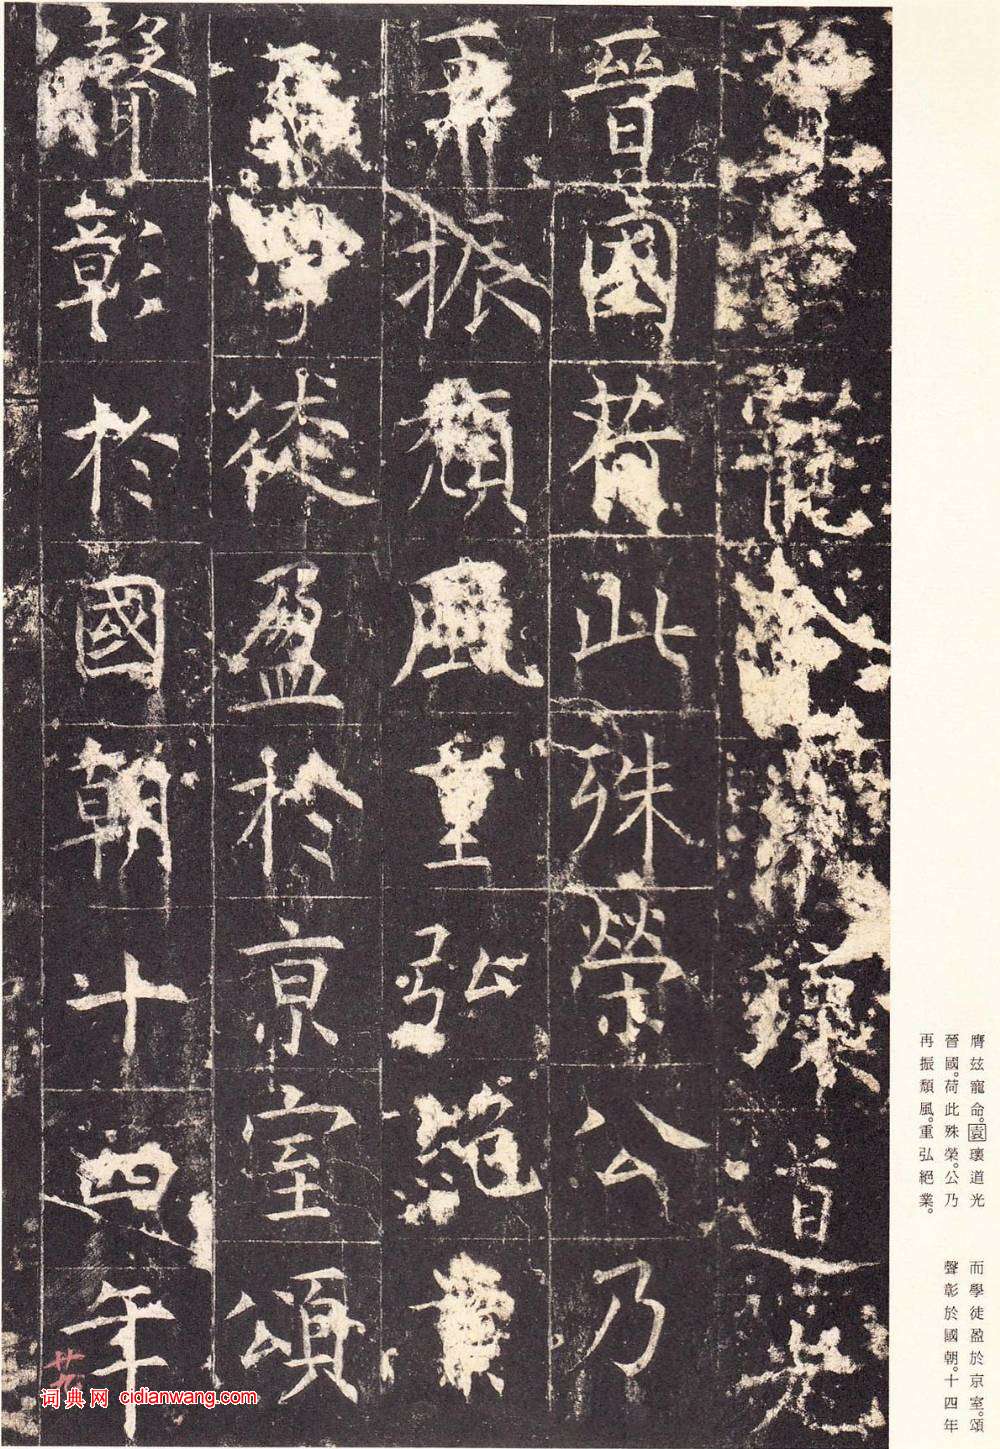 膺玆寵命袁瓌道光
晉國荷此殊榮公乃
再振頹風重弘絕業
而學徒盈於京室頌
聲彰於國朝十四年
膺玆寵命。袁瓌道光
晉國。荷此殊榮。公乃
再振頹風。重弘絕業。
而學徒盈於京室。頌
聲彰於國朝。十四年
廿九
词典网 cidianwang.com